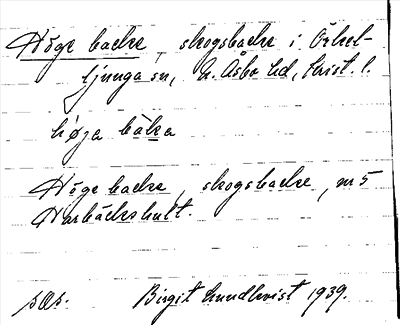 Höge backe, skogsbacke i Örkel-
ljunga sn, N. Åsbo hd, Krist. l.
høja bàka
Höge backe, skogsbacke, nr 5
Harbäckshult.
Birgit Lundkvist 1939.